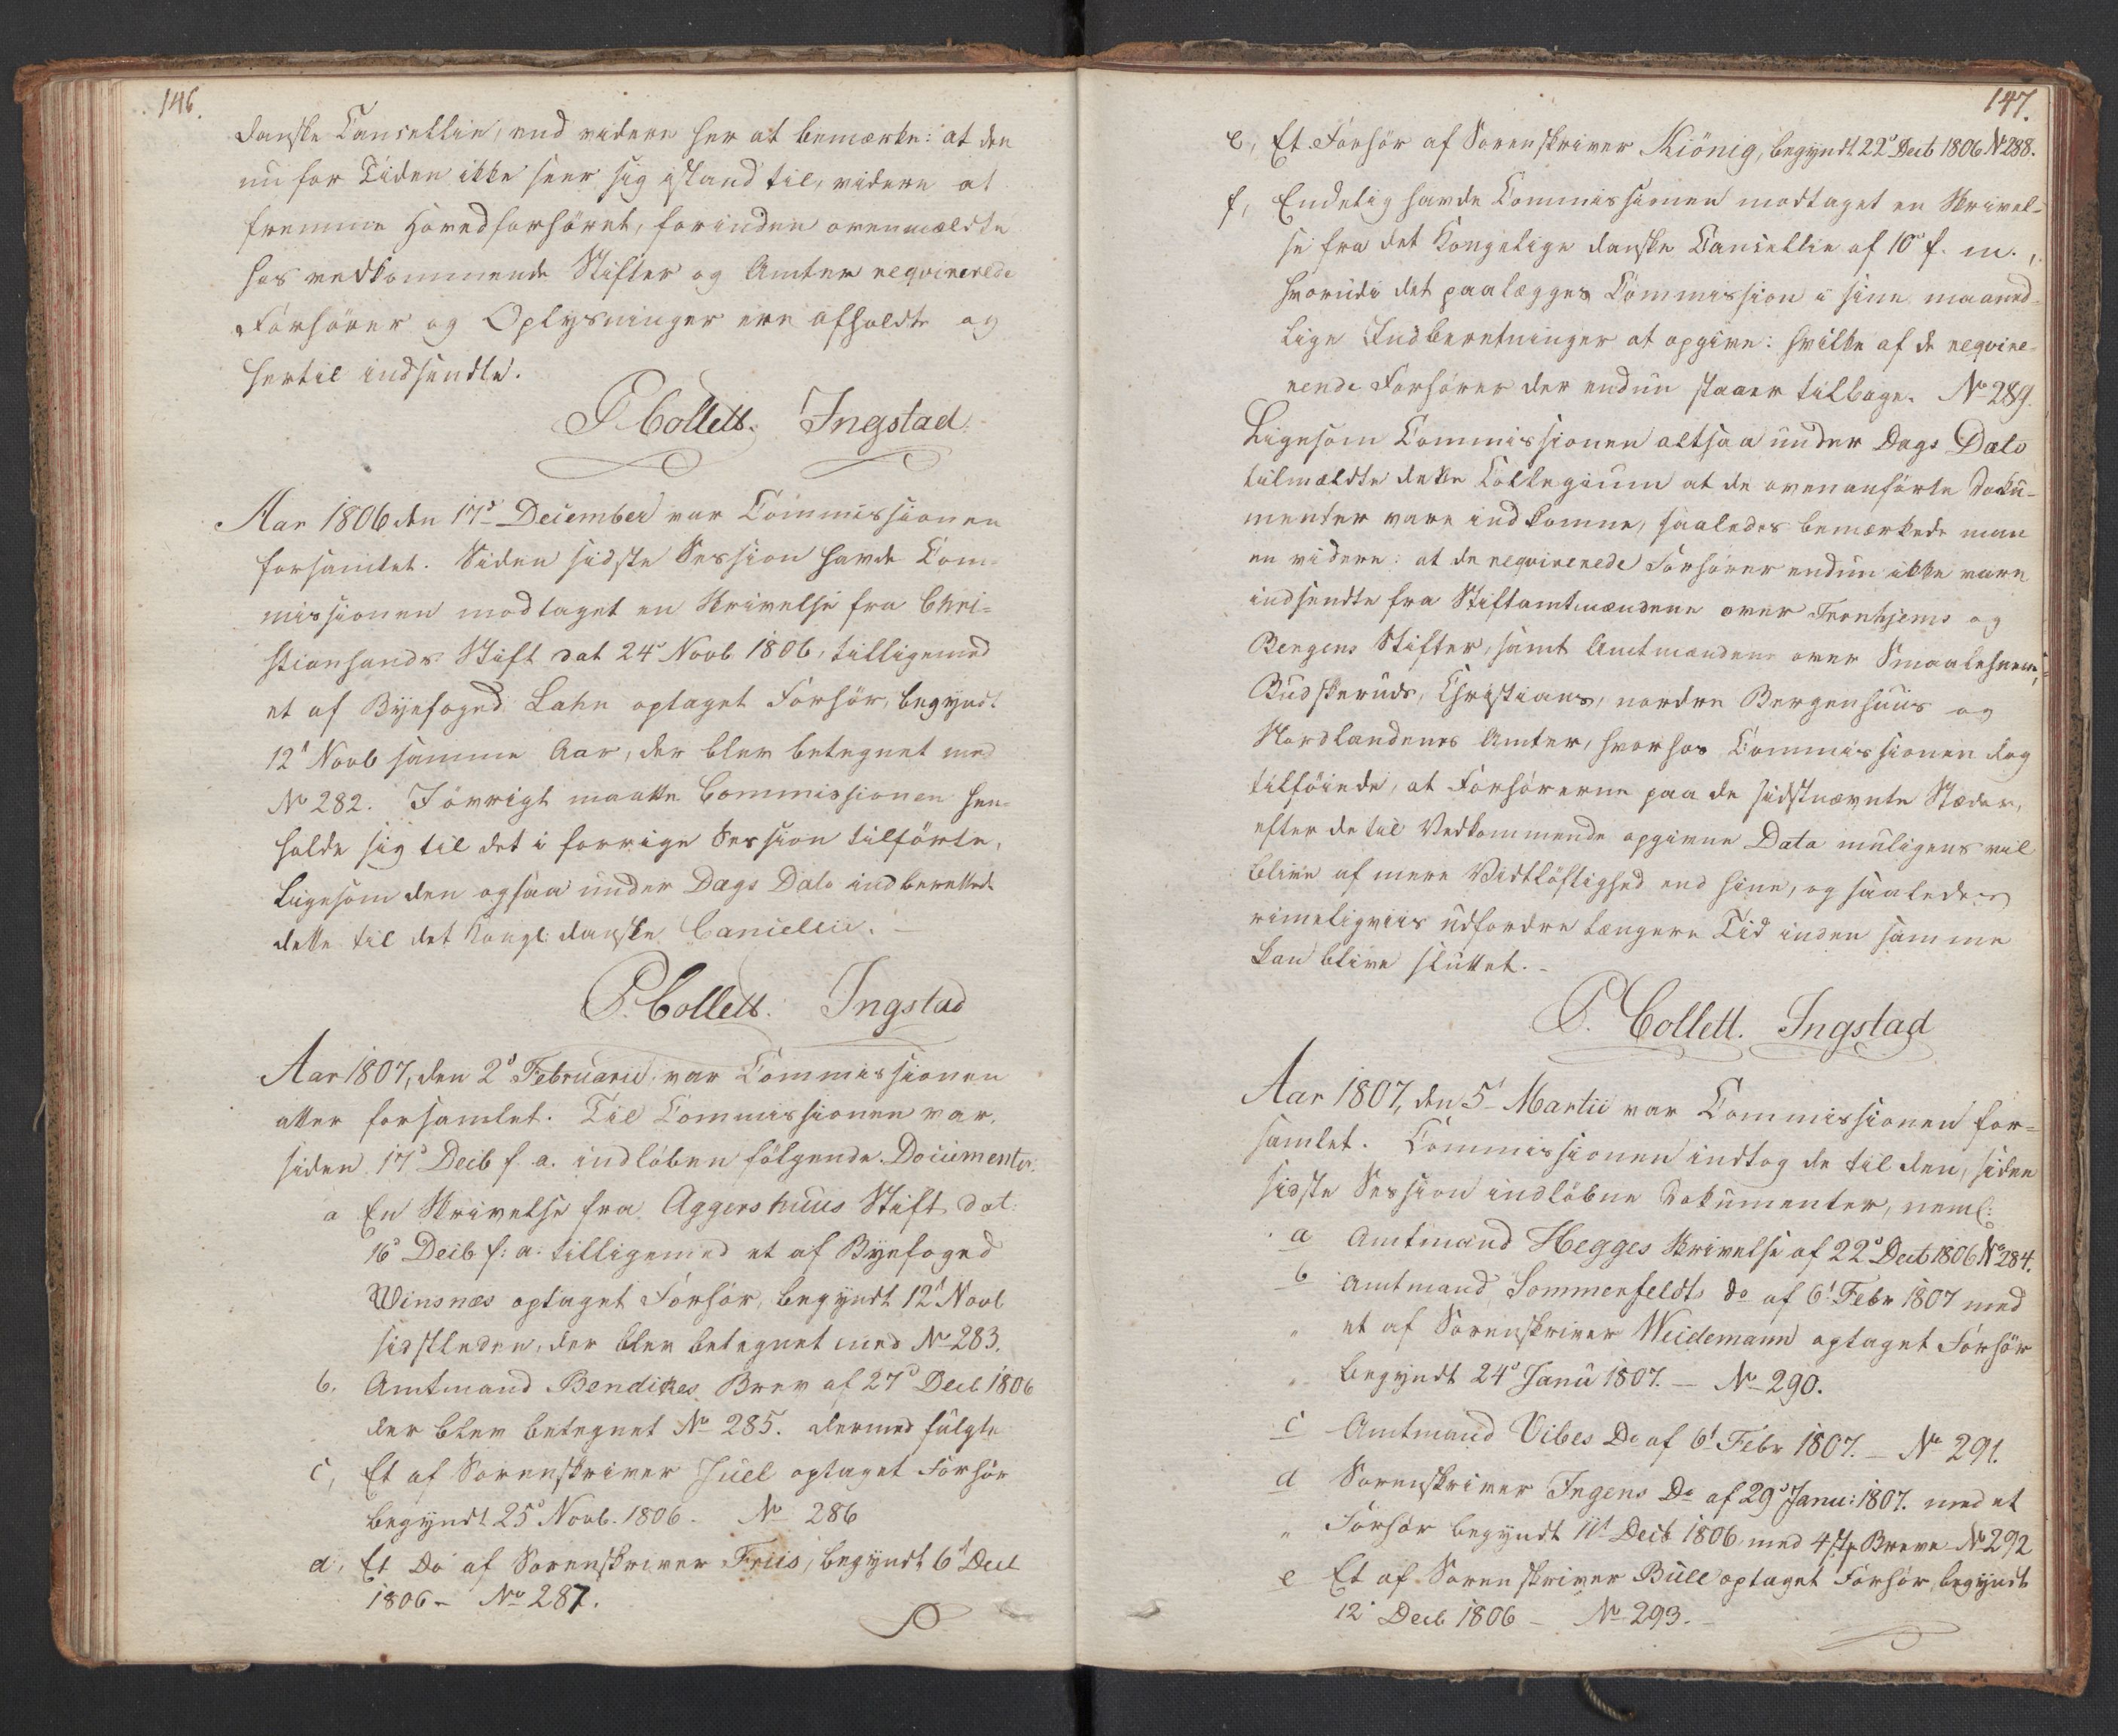 146.
danske Cancellie, end videre her at bemærke: at den
nu for Tiden ikke seer sig istand til, videre at
fremme Hovedforhöret, forinden ovenmældte
hos vedkommende Stifter og Amter reqvirerede
Forhörer og Oplysninger ere afholdte og
hertil indsendte.
P Collett. Ingstad.
Aar 1806 den 17d December var Commissionen
forsamlet. Siden sidste Session havde Com-
missionen modtaget en Skrivelse fra Chri-
stiansands Stift dat 24d Novb 1806, tilligemed
et af Byefoged Lahn optaget Forhör, begyndt
12t Novb samme Aar, der blev betegnet med
No 282. I övrigt maatte Commissionen hen-
holde sig til det i forrige Session tilförte,
ligesom den ogsaa under Dags Dato indberettede
dette til det Kongl: danske Cancellie. –
P. Collett. Ingstad
Aar 1807, den 2d Februarii var Commissionen
atter forsamlet. Til Commissionen var,
siden 17d Decb f. a. indlöben fölgende Documenter:
a En Skrivelse fra Aggershuus Stift dat:
16d Decb f: a: tilligemed et af Byefoged
Winsnæs optaget Forhör, begyndt 12t Novb
sidstleden, der blev betegnet med No 283.
b. Amtmand Bendikes Brev af 27d Decb 1806
der blev betegnet No 285. dermed fulgte
c, Et af Sorenskriver Juel optaget Forhör
begyndt 25d Novb. 1806. No 286
d, Et Do af Sorenskriver Friis, begyndt 6t Decb
1806 – No 287.
147.
e, Et Forhör af Sorenskriver Kiönig, begyndt 22d Decb 1806 No 288.
f, Endelig havde Commissionen modtaget en Skrivel-
se fra det Kongelige danske Cancellie af 10d f. m.,
hvorudi det paalægges Commission i sine maaned-
lige Indberetninger at opgive: hvilke af de reqvire-
rende Forhörer der endnu staaer tilbage. No 289.
Ligesom Commissionen altsaa under Dags Dato
tilmældte dette Collegium at de ovenanförte Doku-
menter vare indkomne, saaledes bemærkede man
en videre: at de reqvirerede Forhörer endnu ikke vare
indsendte fra Stiftamtmændene over Tronhjems og
Bergens Stifter, samt Amtmændene over Smaalehnene,
Budskeruds, Christians, nordre Bergenhuus og
Nordlandenes Amter, hvorhos Commissionen dog
tilföiede, at Forhörerne paa de sidstnævnte Stæder,
efter de til Vedkommende opgivne Data muligens vil
blive af mere Vidtlöftighed end hine, og saaledes
rimeligviis udfordre længere Tid inden samme
kan blive sluttet. –
P. Collett. Ingstad
Aar 1807, den 5t Martii var Commissionen for-
samlet. Commissionen indtog de til den, siden
sidste Session indlöbne Dokumenter, neml:
a Amtmand Hegges Skrivelse af 22d Decb 1806 No 284.
b Amtmand Sommerfeldts do af 6t Febr 1807 med
" et af Sorenskriver Weidemann optaget Forhör
" begyndt 24d Janu 1807. – No 290.
c Amtmand Vibes Do af 6t Febr 1807. – No 291.
d Sorenskriver Ingens Do af 29d Janu: 1807. med et
" Forhör begyndt 11t Decb 1806, med 4 Breve No 292
e Et af Sorenskriver Bull optaget Forhör, begyndt
12t Decb 1806 – No 293. –